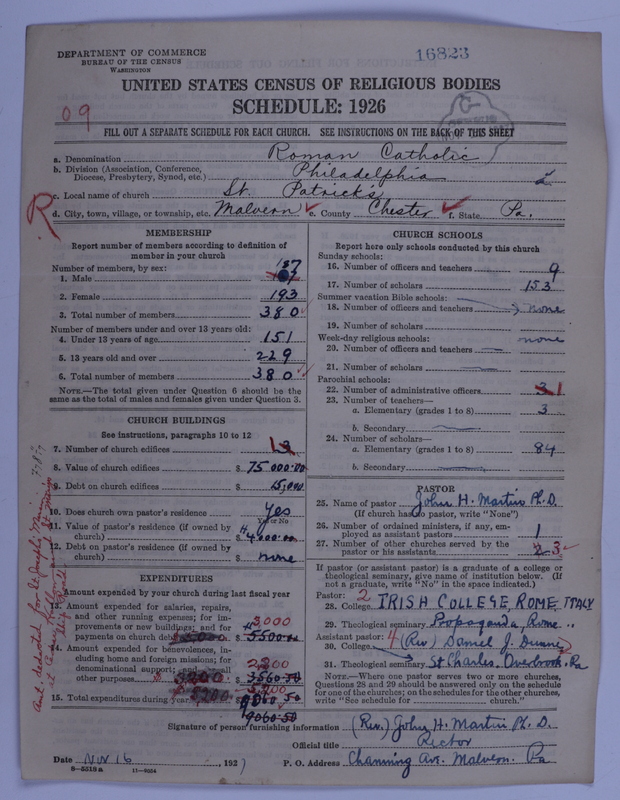 DEPARTMENT OF COMMERCE
BUREAU OF THE CENSUS
WASHINGTON
16823
UNITED STATES CENSUS OF RELIGIOUS BODIES
SCHEDULE: 1926
09
FILL OUT A SEPARATE SCHEDULE FOR EACH CHURCH. SEE INSTRUCTIONS ON THE BACK OF THIS SHEET
a. Denomination Roman Catholic
b. Division (Association, Conference, Diocese, Presbytery, Synod, etc.) Philadelphia
c. Local name of church St. Patrick's
R
d. City, town, village, or township, etc. Malvern e. County Chester f. State Pa.
MEMBERSHIP
Report number of members according to definition of member in your church
Number of members, by sex:
1. Male 187
2. Female 193
3. Total number of members 380
Number of members under and over 13 years old:
4. Under 13 years of age 151
5. 13 years old and over 229
6. Total number of members 380
NOTE.—The total given under Question 6 should be the same as the total of males and females given under Question 3.
CHURCH BUILDINGS
See instructions, paragraphs 10 to 12
7. Number of church edifices 1 3
8. Value of church edifices $ 75000.00
9. Debt on church edifices $ 15,000
10. Does your church own pastor's residence? Yes
Yes or No
11. Value of pastor's residence (if owned by church) $ 4000.00
12. Debt on pastor's residence (if owned by church) $ none
EXPENDITURES
Amount expended by your church during last fiscal year
13. Amount expended for salaries, repairs, and other running expenses; for improvements or new buildings; and for payments on church debt $ 5500.00
3,000
14. Amount expended for benevolences, including home and foreign missions; for denominational support; and for all other purposes $ 3560.50
2200
3200
15. Total expenditures during year $
5,200
9060.50
CHURCH SCHOOLS
Report here only schools conducted by this church
Sunday schools:
16. Number of officers and teachers 9
17. Number of scholars 153
Summer vacation Bible schools:
18. Number of officers and teachers none
19. Number of scholars
Week-day religious schools: none
20. Number of officers and teachers
21. Number of scholars
Parochial schools:
22. Number of administrative officers 3 1
23. Number of teachers—
a. Elementary (grades 1 to 8) 3
b. Secondary
24. Number of scholars—
a. Elementary (grades 1 to 8) 84
b. Secondary
PASTOR
25. Name of pastor John H. Martin Ph. D.
(If church has no pastor, write "None")
26. Number of ordained ministers, if any, employed as assistant pastors 1
27. Number of other churches served by the pastor or his assistants 2 3
If pastor (or assistant pastor) is a graduate of a college or theological seminary, give name of institution below. (If not a graduate, write "No" in the space indicated.)
Pastor: 2
28. College IRISH COLLEGE, ROME, ITALY
29. Theological seminary Propaganda, Rome
Assistant pastor: 4 (Rev) Daniel J. Dunne
30. College
31. Theological seminary St Charles. Overbrook. Pa
NOTE.—Where one pastor serves two or more churches, Questions 28 and 29 should be answered only on the schedule for one of the churches; on the schedules for the other churches, write "See schedule for church."
Signature of person furnishing information (Rev.) John H. Martin Ph. D.
Official title Rector
Date Nov 16, 1927 P. O. Address Channing Ave. Malvern. Pa
8-5518a 11-9554